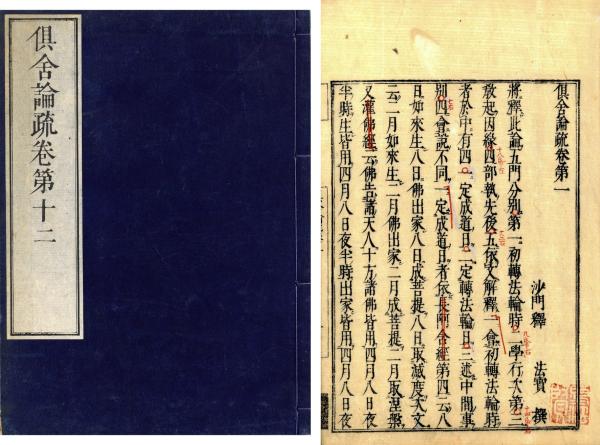 俱舍論疏卷第十二
俱舍論疏卷第一
沙門釋 法寶 撰
將釋此論五門分別第一初轉法輪時二學行次第三
教起因緣四部執先後五依文解釋一會初轉法輪時
者於中有四一定成道日二定轉法輪日三述中間事
別四會說不同一定成道日者依長阿含經第四云八
日如來生八日佛出家八日成菩提八日取滅度又文
云二月如來生二月佛出家二月成菩提二月取涅槃
又灌佛經云佛告諸天人十方諸佛皆用四月八日夜
半時生皆用四月八日夜半時出家皆用四月八日夜